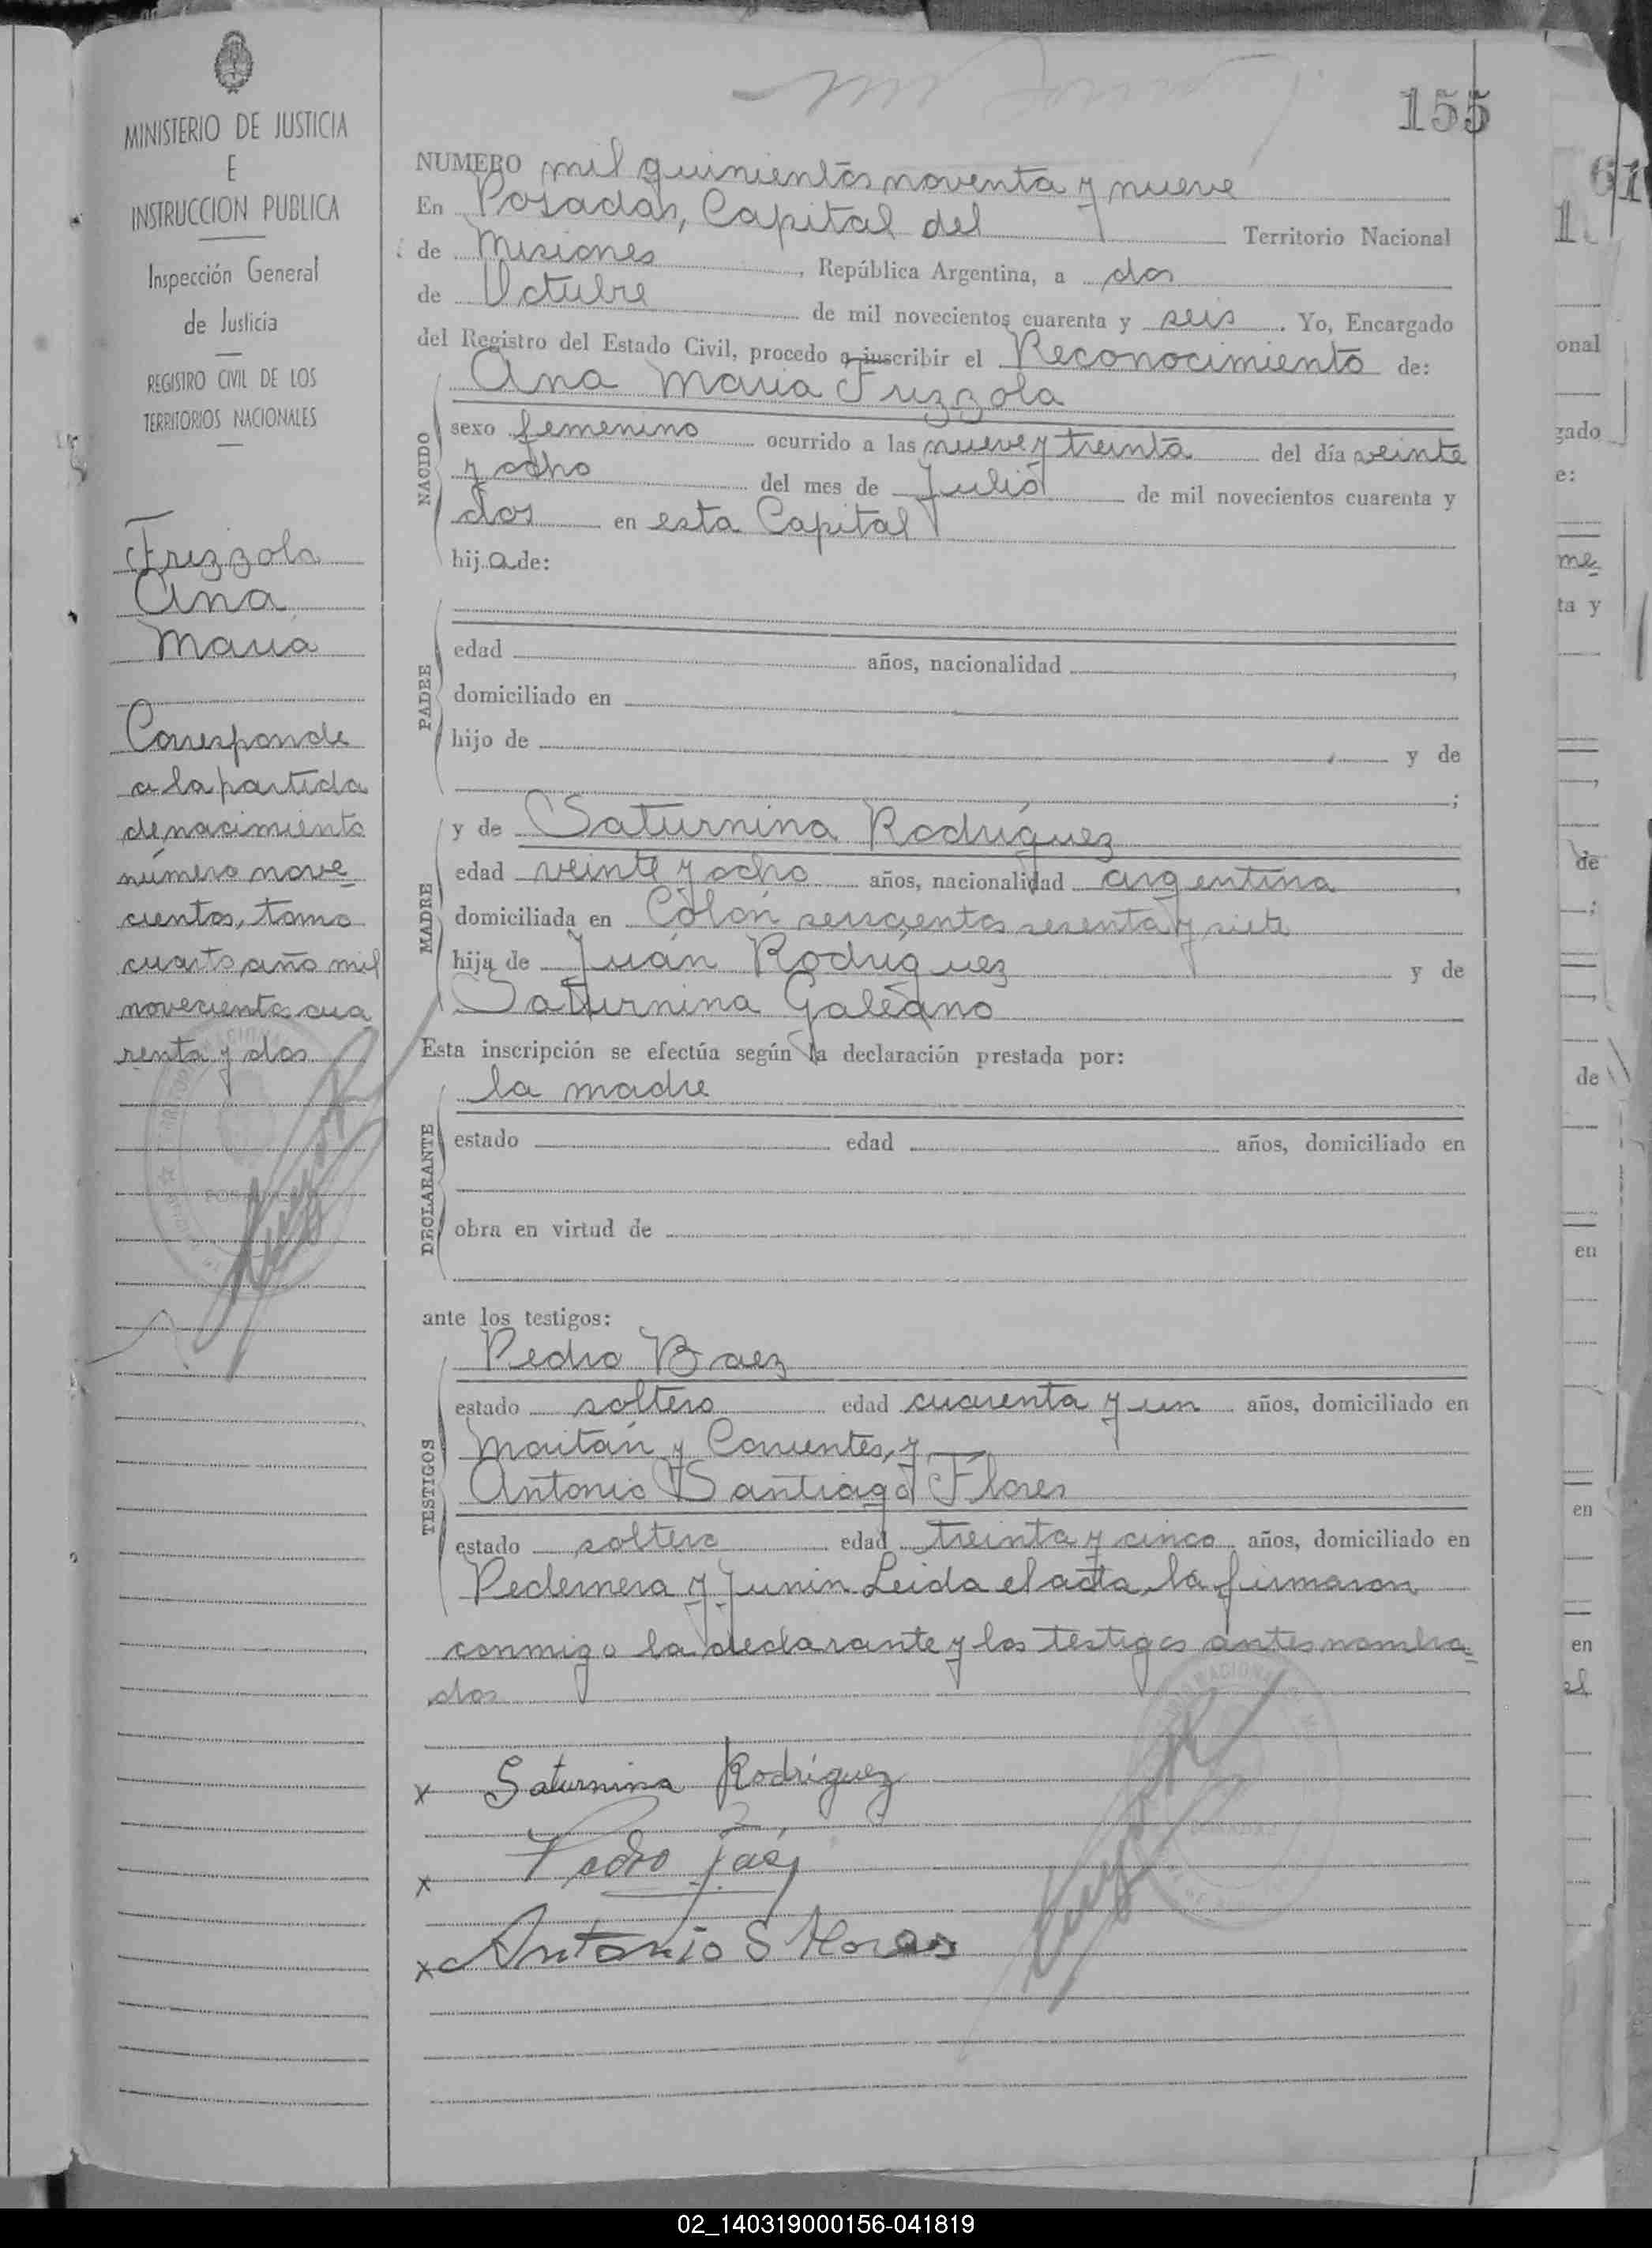 155
MINISTERIO DE JUSTICIA
E
INSTRUCCION PUBLICA
Inspección General
de Justicia
REGISTRO CIVIL DE LOS
TERRITORIOS NACIONALES
Frizzola
Ana
Maria
Corresponde
a la partida
de nacimiento
número nove
cientos, tomo
cuarto año mil
novecientos cua
renta y dos
NUMERO mil quinientos noventa y nueve
En Posadas, Capital del Territorio Nacional
de Misiones, República Argentina, a dos
de Octubre de mil novecientos cuarenta y seis. Yo, Encargado
del Registro del Estado Civil, procedo a inscribir el Reconocimiento de:
Ana Maria Frizzola
NACIDO
sexo femenino ocurrido a las nueve y treinta del día veinte
y ocho del mes de Julio de mil novecientos cuarenta y
dos en esta Capital
hija de:
PADRE
edad años, nacionalidad
domiciliado en
hijo de y de
;
MADRE
y de Saturnina Rodríguez
edad veinte y ocho años, nacionalidad argentina,
domiciliada en Colón seiscientos sesenta y siete
hija de Juán Rodriguez y de
Saturnina Galeano
Esta inscripción se efectúa según la declaración prestada por:
DECLARANTE
la madre
estado edad años, domiciliado en
obra en virtud de
ante los testigos:
TESTIGOS
Pedro Baez
estado soltero edad cuarenta y un años, domiciliado en
Maitán y Corrientes, y
Antonio Santiago Flores
estado soltero edad treinta y cinco años, domiciliado en
Pedernera y Junin Leida el acta, la firmaron
conmigo la declarante y los testigos antes nombra
dos
x Saturnina Rodríguez
x Pedro
x Antonio S Flores
61
1
onal
gado
e:
me
ta y
de
;
de
en
en
en
el
02_140319000156-041819